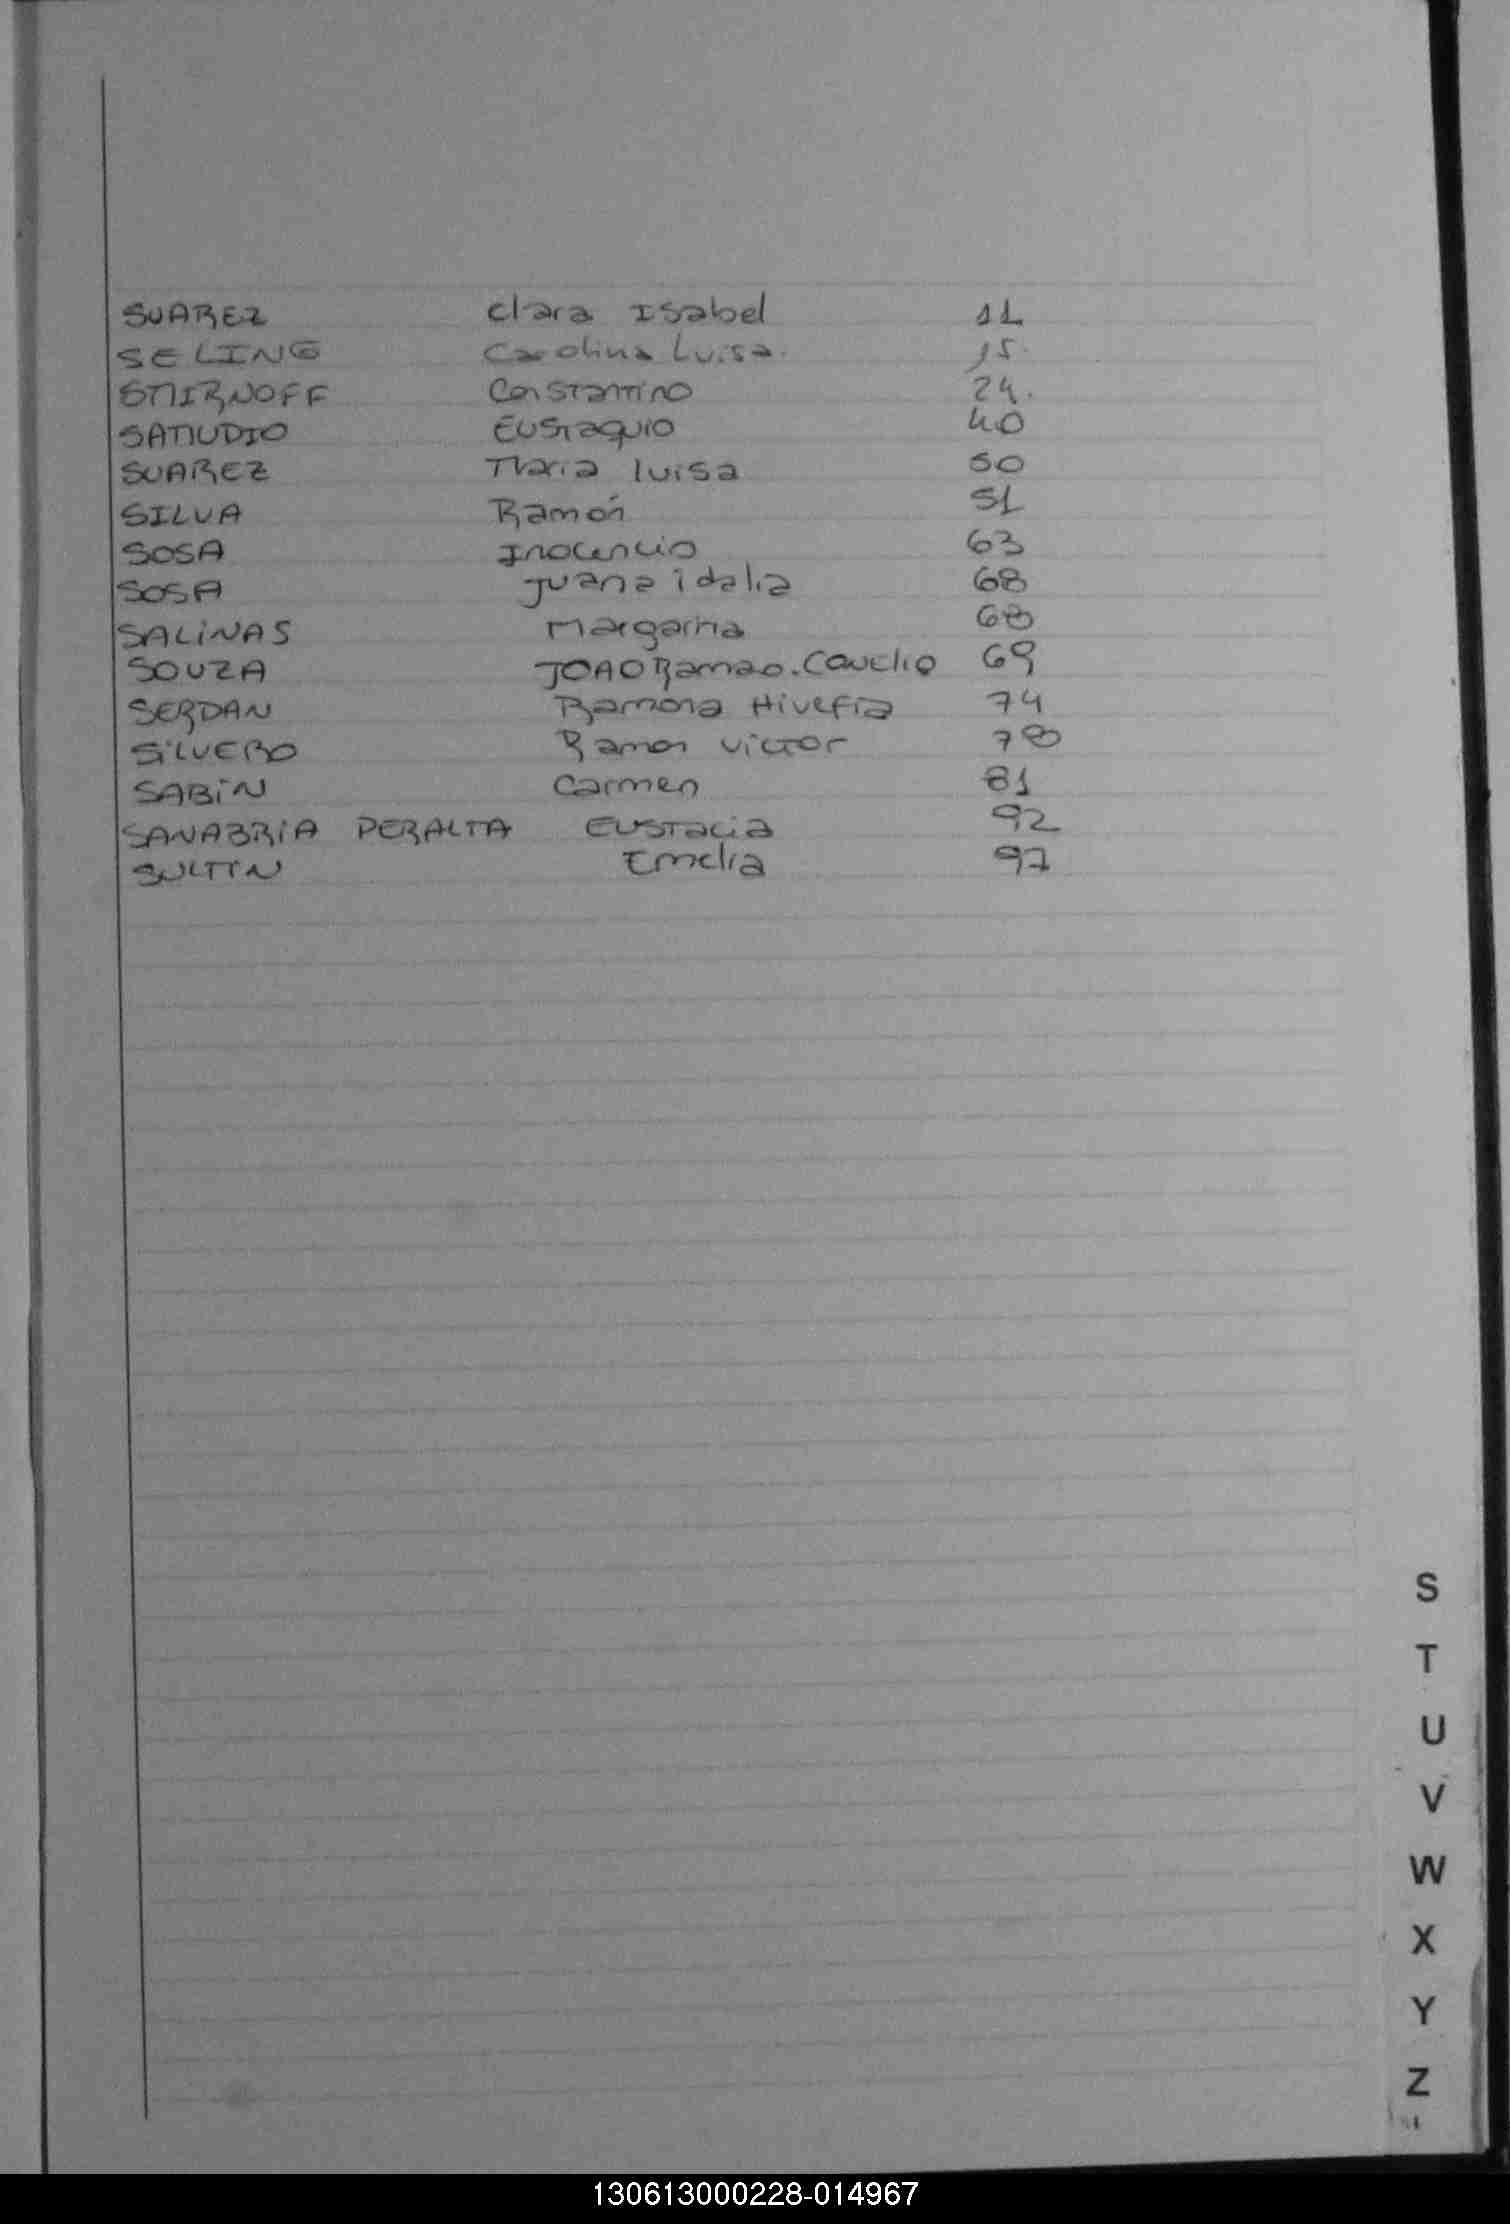 SUAREZ Clara Isabel 11
SELING Carolina Luisa. 15.
SMIRNOFF Constantino 24.
SAMUDIO Eustaquio 40
SUAREZ Maria luisa 50
SILVA Ramón 51
SOSA Inocencio 63
SOSA Juana idalia 68
SALINAS Margarita 68
SOUZA JOAO Ramao. 69
SERDAN Ramona 74
SILVERO Ramon Victor 78
SABIN Carmen 81
SANABRIA PERALTA EUSTACIA 92
Emelia 97
S
T
U
V
W
X
Y
Z
130613000228-014967